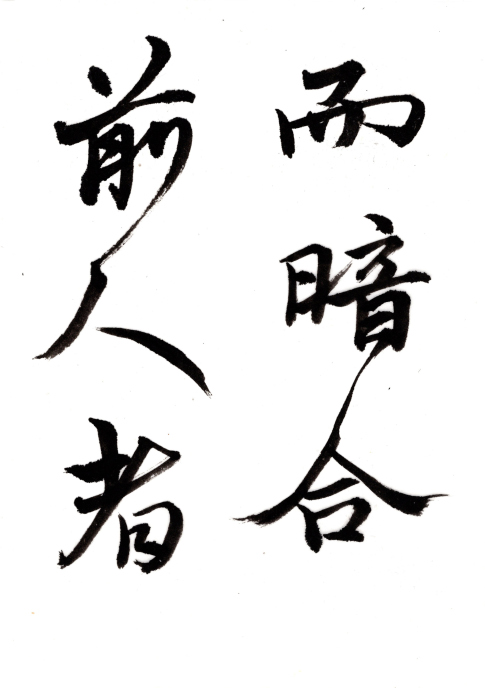 而暗合
前人者